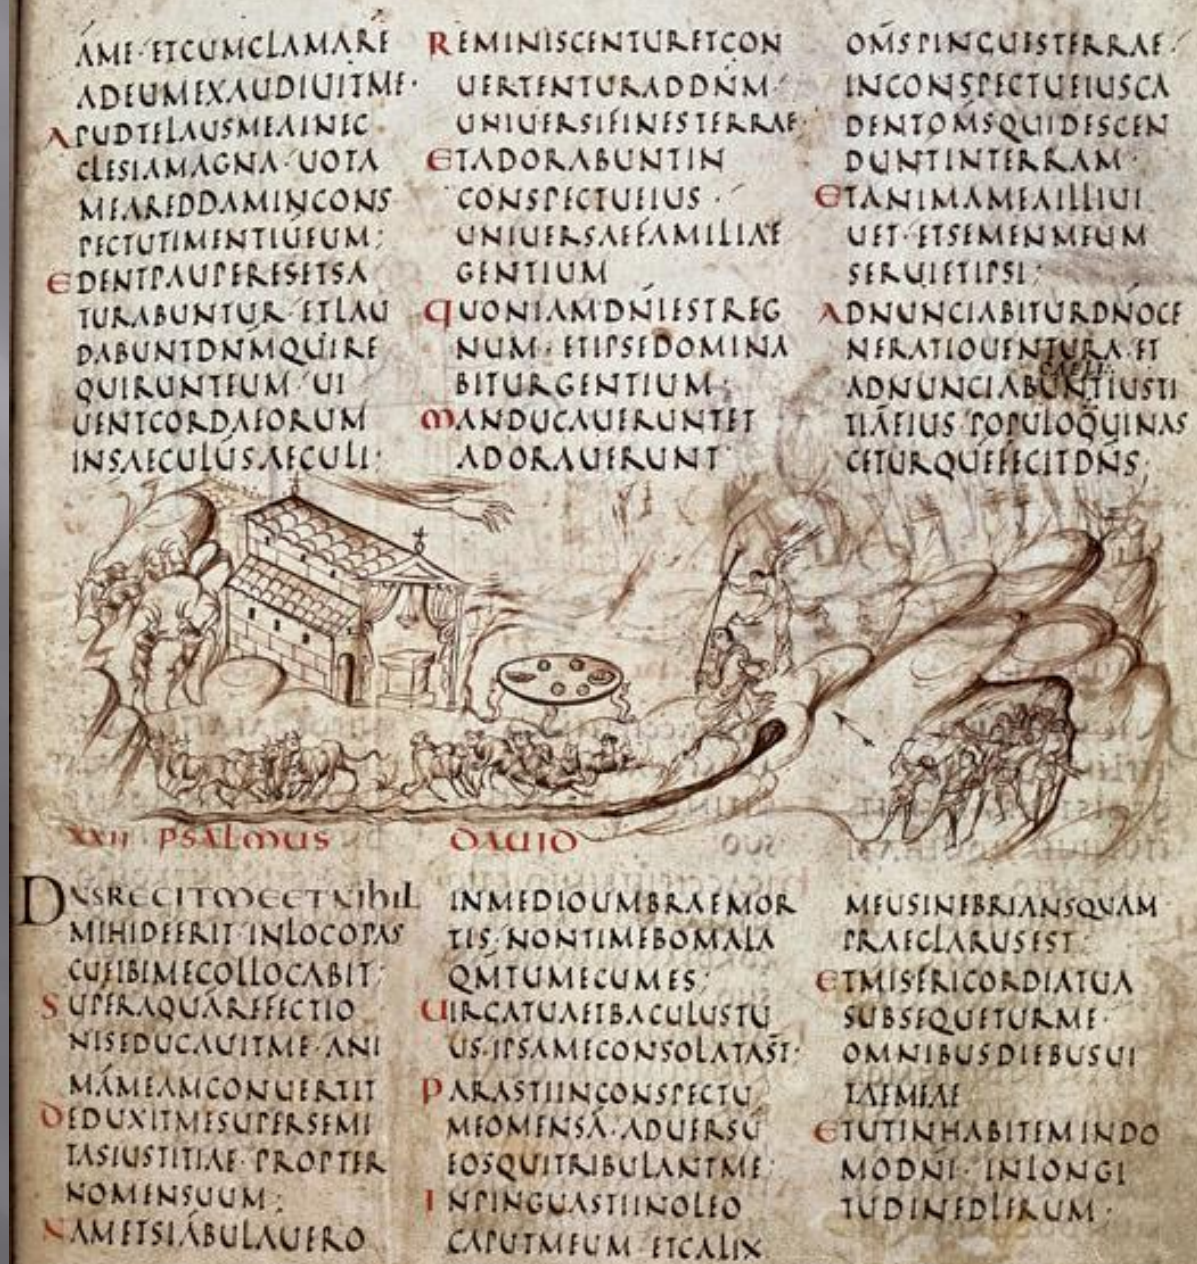 AME·ETCUMCLAMARE
ADEUMEXAUDIUITME·
APUDTELAUSMEAINEC
CLESIAMAGNA·UOTA
MEAREDDAMINCONS
PECTUTIMENTIUEUM;
EDENTPAUPERESETSA
TURABUNTUR·ETLAU
DABUNTDNMQUIRE
QUIRUNTEUM·UI
UENTCORDAEORUM
INSAECULUSAECULI·
REMINISCENTURETCON
UERTENTURADDNM·
UNIUERSIFINESTERRAE;
ETADORABUNTIN
CONSPECTUEIUS·
UNIUERSAEFAMILIAE
GENTIUM
QUONIAMDNIESTREG
NUM·ETIPSEDOMINA
BITURGENTIUM;
MANDUCAUERUNTET
ADORAUERUNT
OMSPINGUESTERRAE·
INCONSPECTUEIUSCA
DENTOMSQUIDESCEN
DUNTINTERRAM·
ETANIMAMEAILLIUI
UET·ETSEMENMEUM
SERUIETIPSI;
ADNUNCIABITURDNOGE
NERATIOUENTURA·ET
CAELI·
ADNUNCIABUNTIUSTI
TIĀEIUS·POPULOQUINAS
CETURQUĒFECITDNS;
XXII PSALMUS DAUID
DNSREGITMEETNIHIL
MIHIDEERIT·INLOCOPAS
CUEIBIMECOLLOCABIT;
SUPERAQUĀREFECTIO
NISEDUCAUITME·ANI
MĀMEAMCONUERTIT
DEDUXITMESUPERSEMI
TASIUSTITIAE·PROPTER
NOMENSUUM;
NAMETSIĀBULAUERO
INMEDIOUMBRAEMOR
TIS·NONTIMEBOMALA
QMTUMECUMES;
UIRGATUAETBACULUSTU
US·IPSAMECONSOLATAST·
PARASTIINCONSPECTU
MEOMENSĀ·ADUERSŪ
EOSQUITRIBULANTME;
INPINGUASTIINOLEO
CAPUTMEUM·ETCALIX
MEUSINEBRIANSQUAM
PRAECLARUSEST·
ETMISERICORDIATUA
SUBSEQUETURME·
OMNIBUSDIEBUSUI
TAEMEAE
ETUTINHABITEMINDO
MODNI·INLONGI
TUDINEDIERUM·